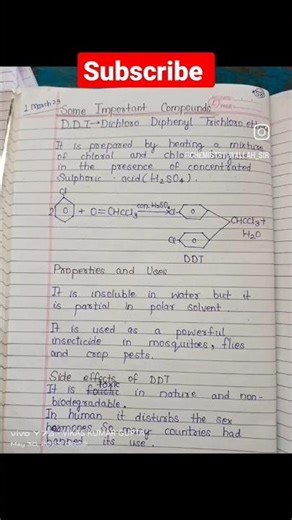 Subscribe
Some Important Compounds
D.D.T → Dichloro Diphenyl Trichloro eth
It is prepared by heating a mixture
of chloral and chlorobenzene
in the presence of concentrated
Sulphoric acid (H₂SO₄).
Cl
2 + O=CHCCl₃ con. H₂SO₄ → Cl
CHCCl₃ +
H₂O
Cl
DDT
Properties and Uses
It is insoluble in water but it
is partial in polar solvent.
It is used as a powerful
insecticide in mosquitoes, flies
and crop pests.
Side effects of DDT
toxic
It is in nature and non-
biodegradable.
In human it disturbs the sex
hormones. So many countries had
banned its use.
vivo
May 30,